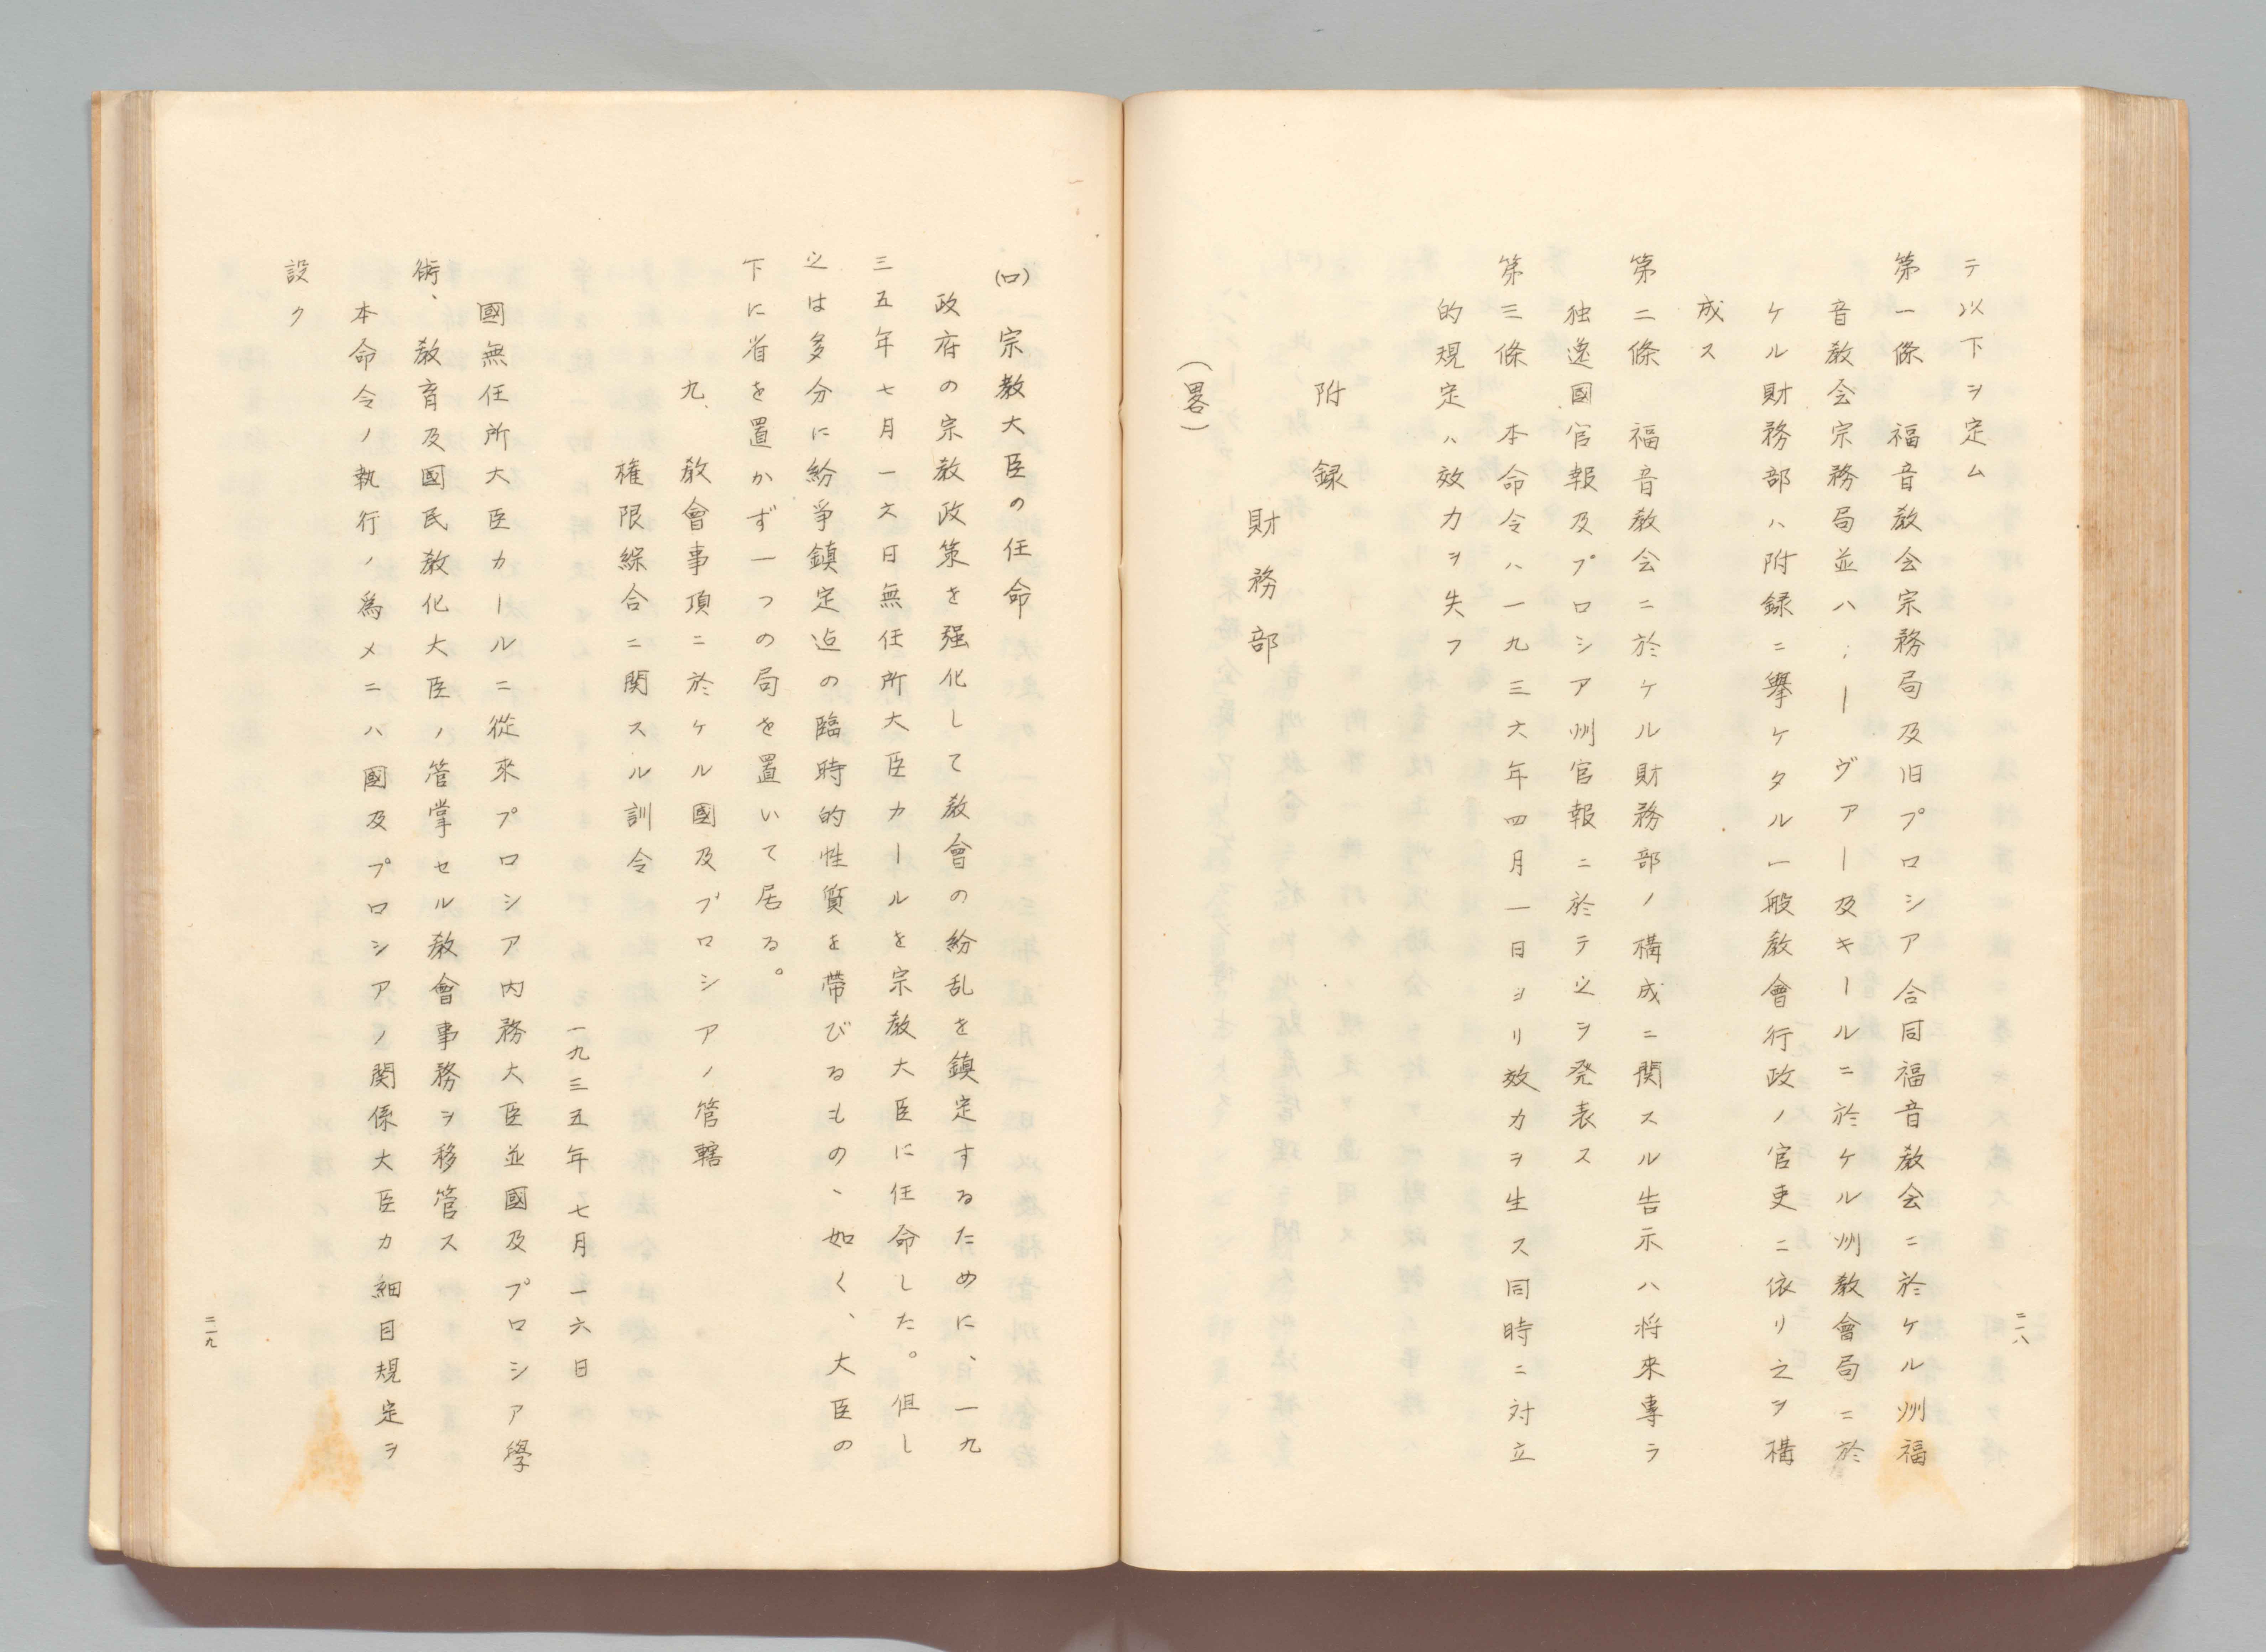 テ以下ヲ定ム
第一條　福音教会宗務局及旧プロシア合同福音教会ニ於ケル州福
音教会宗務局並ハノーヴァー及キールニ於ケル州教會局ニ於
ケル財務部ハ附録ニ擧ケタル一般教會行政ノ官吏ニ依リ之ヲ構
成ス
第二條　福音教会ニ於ケル財務部ノ構成ニ関スル告示ハ将來專ラ
独逸國官報及プロシア州官報ニ於テ之ヲ発表ス
第三條　本命令ハ一九三六年四月一日ヨリ效力ヲ生ス同時ニ対立
的規定ハ效力ヲ失フ
附録
財務部
（畧）
二一八
(ロ)　宗教大臣の任命
政府の宗教政策を强化して教會の紛乱を鎮定するために、一九
三五年七月一六日無任所大臣カールを宗教大臣に任命した。但し
之は多分に紛爭鎮定迄の臨時的性質を帶びるものゝ如く、大臣の
下に省を置かず一つの局を置いて居る。
九、教會事項ニ於ケル國及プロシアノ管轄
権限綜合ニ関スル訓令
一九三五年七月一六日
國無任所大臣カールニ從來プロシア内務大臣並國及プロシア學
術、教育及國民教化大臣ノ管掌セル教會事務ヲ移管ス
本命令ノ執行ノ爲メニハ國及プロシアノ関係大臣カ細目規定ヲ
設ク
二一九